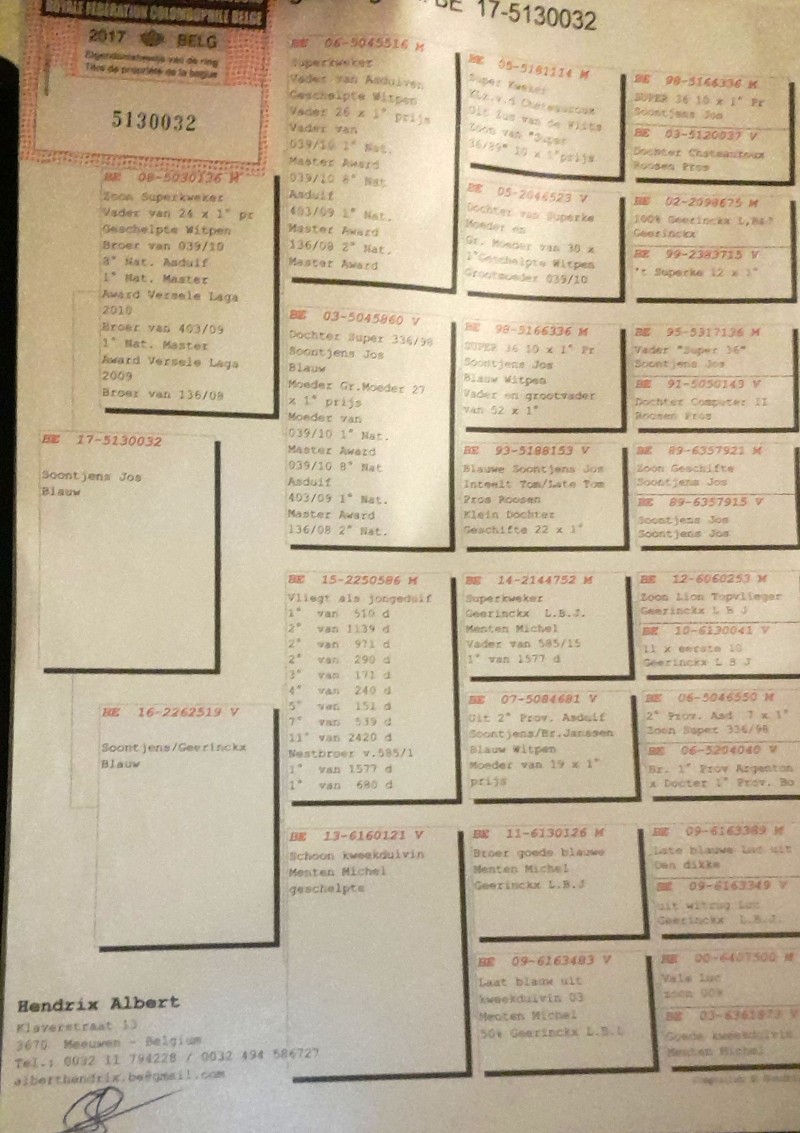 BE 17-5130032
ROYALE FEDERATION COLOMBOPHILE BELGE
2017 BELG
Eigendomsbewijs van de ring
Titre de propriété de la bague
5130032
BE 08-5030136 M
Zoon Superkweker
Vader van 24 x 1° pr
Geschelpte Witpen
Broer van 039/10
8° Nat. Asduif
1° Nat. Master
Award Versele Laga
2010
Broer van 403/09
1° Nat. Master
Award Versele Laga
2009
Broer van 136/08
BE 17-5130032
Soontjens Jos
Blauw
BE 16-2262519 V
Soontjens/Geerinckx
Blauw
BE 06-5045516 M
Superkweker
Vader van Asduiven
Geschelpte Witpen
Vader 26 x 1° prijs
Vader van
039/10 1° Nat.
Master Award
039/10 8° Nat
Asduif
403/09 1° Nat.
Master Award
136/08 2° Nat.
Master Award
BE 03-5045860 V
Dochter Super 336/98
Soontjens Jos
Blauw
Moeder Gr.Moeder 27
x 1° prijs
Moeder van
039/10 1° Nat.
Master Award
039/10 8° Nat
Asduif
403/09 1° Nat.
Master Award
136/08 2° Nat.
BE 15-2250586 M
Vliegt als jongeduif
1° van 510 d
2° van 1139 d
2° van 971 d
2° van 290 d
3° van 171 d
4° van 240 d
5° van 151 d
7° van 539 d
11° van 2420 d
Nestbroer v.585/1
1° van 1577 d
1° van 680 d
BE 13-6160121 V
Schoon kweekduivin
Menten Michel
geschelpte
BE 05-5181114 M
Super Kweker
Klz.v.d Chateauroux
Uit Zus van de Witte
Zoon van "Super
36/89" 10 x 1°prijs
BE 05-2046523 V
Dochter van Superke
Moeder en
Gr. Moeder van 30 x
1°Geschelpte Witpen
Grootmoeder 039/10
BE 98-5166336 M
SUPER 36 10 x 1° Pr
Soontjens Jos
Blauw Witpen
Vader en grootvader
van 52 x 1°
BE 93-5188153 V
Blauwe Soontjens Jos
Inteelt Tom/Late Tom
Pros Roosen
Klein Dochter
Geschifte 22 x 1°
BE 14-2144752 M
Superkweker
Geerinckx L.B.J.
Menten Michel
Vader van 585/15
1° van 1577 d
BE 07-5084681 V
Uit 2° Prov. Asduif
Soontjens/Br.Janssen
Blauw Witpen
Moeder van 19 x 1°
prijs
BE 11-6130126 M
Broer goede blauwe
Menten Michel
Geerinckx L.B.J
BE 09-6163483 V
Laat blauw uit
kweekduivin 03
Menten Michel
50% Geerinckx L.B.L
BE 98-5166336 M
SUPER 36 10 x 1° Pr
Soontjens Jos
BE 03-5120037 V
Dochter Chateauroux
Roosen Pros
BE 02-2098675 M
100% Geerinckx
Geerinckx
BE 99-2383715 V
't Superke 12 x 1°
BE 95-5317136 M
Vader "Super 36"
Soontjens Jos
BE 91-5050143 V
Dochter Computer II
Roosen Pros
BE 89-6357921 M
Zoon Geschifte
Soontjens Jos
BE 89-6357915 V
Soontjens Jos
Soontjens Jos
BE 12-6060253 M
Zoon Lion Topvlieger
Geerinckx L B J
BE 10-6130041 V
11 x eerste 10
Geerinckx L B J
BE 06-5046550 M
2° Prov. Asd 7 x 1°
Zoon Super 336/98
BE 06-5204040 V
Br. 1° Prov Argenton
x Docter 1° Prov. Bo
BE 09-6163389 M
Late blauwe Luc uit
Den dikke
BE 09-6163349 V
uit witrug Luc
Geerinckx L.B.J.
BE 00-6407500 M
Vale Luc
zoon
BE 03-6361873 V
Goede kweekduivin
Menten Michel
Hendrix Albert
Klaverstraat 13
3670 Meeuwen - Belgium
Tel.: 0032 11 794228 / 0032 494 586727
alberthendrix.be@gmail.com